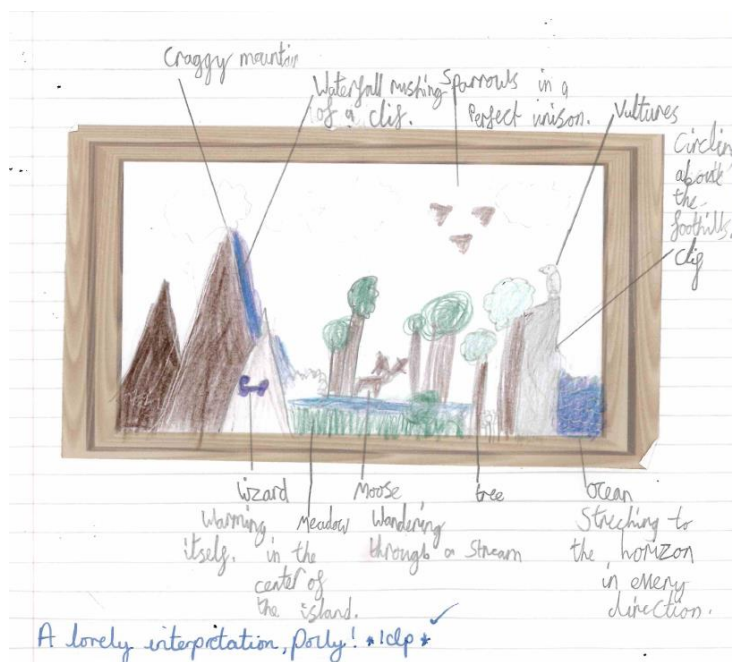 Craggy mountain
Waterfall rushing
of a clif.
Sparrows in a
Perfect unison.
Vultures
Circling
above
the
foothills.
Clif
lizard
Warming
itself.
Meadow
in the
center of
the island.
Moose
Wandering
through a Stream
tree
Ocean
Streching to
the horizon
in every
direction.
A lovely interpretation, Polly! *1dp*